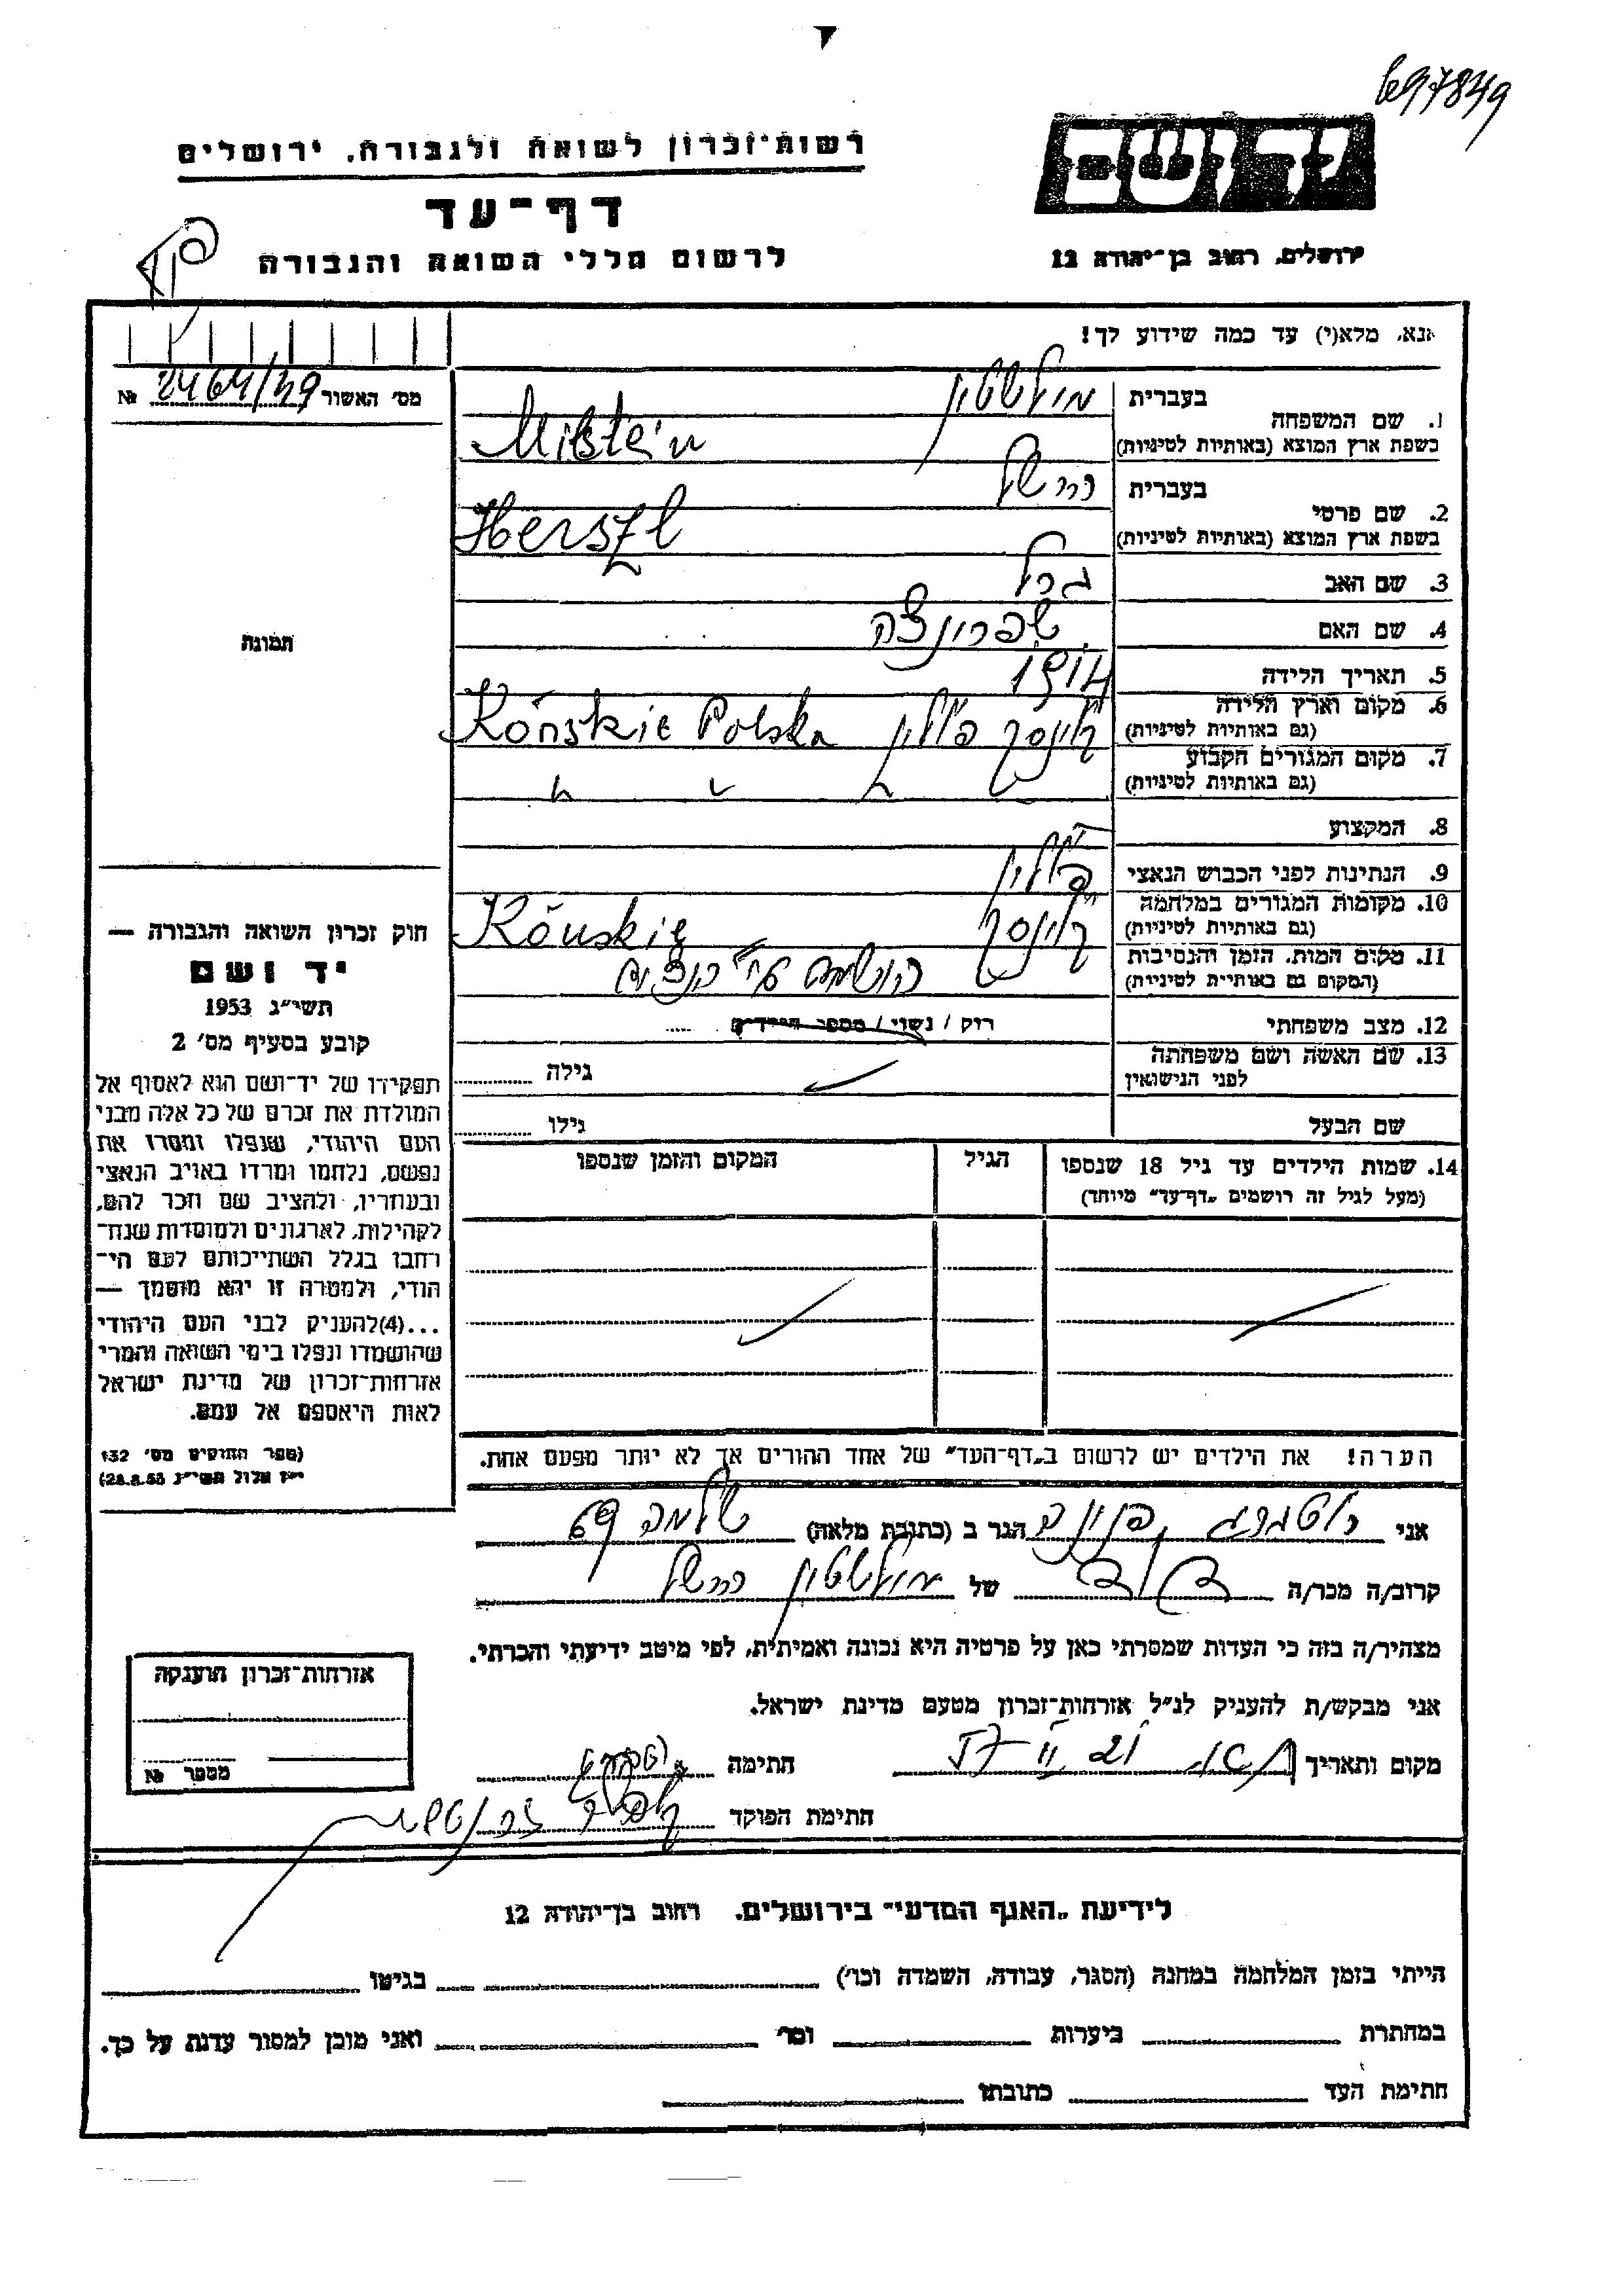 697849
יד ושם
רשות־זכרון לשואה ולגבורה, ירושלים
דף־עד
לרשום חללי השואה והגבורה
ירושלים, רחוב בן־יהודה 12
אנא, מלא(י) עד כמה שידוע לך!
מס׳ האשור № 2464/49
1. שם המשפחה
בעברית
בשפת ארץ המוצא (באותיות לטיניות) Milstein
2. שם פרטי
בעברית הרשל
בשפת ארץ המוצא (באותיות לטיניות) Herszl
3. שם האב
4. שם האם שפרינצה
5. תאריך הלידה 1914
6. מקום וארץ הלידה
(גם באותיות לטיניות) קינסק פולין Kónskie Polska
7. מקום המגורים הקבוע
(גם באותיות לטיניות) " " " "
8. המקצוע
9. הנתינות לפני הכבוש הנאצי פולין
10. מקומות המגורים במלחמה
(גם באותיות לטיניות) קינסק Kónskie
11. מקום המות, הזמן והנסיבות
(המקום גם באותיות לטיניות) הושמד ע״י הנצים
12. מצב משפחתי רוק / נשוי / מספר הילדים .....
13. שם האשה ושם משפחתה
לפני הנישואין גילה
שם הבעל גילו
14. שמות הילדים עד גיל 18 שנספו הגיל המקום והזמן שנספו
(מעל לגיל זה רושמים „דף־עד״ מיוחד)
הערה! את הילדים יש לרשום ב„דף־העד״ של אחד ההורים אך לא יותר מפעם אחת.
תמונה
חוק זכרון השואה והגבורה —
יד ושם
תשי״ג 1953
קובע בסעיף מס׳ 2
תפקידו של יד־ושם הוא לאסוף אל
המולדת את זכרם של כל אלה מבני
העם היהודי, שנפלו ומסרו את
נפשם, נלחמו ומרדו באויב הנאצי
ובעוזריו, ולהציב שם וזכר להם,
לקהילות, לארגונים ולמוסדות שנח־
רחבו בגלל השתייכותם לעם הי־
הודי, ולמטרה זו יהא מוסמך —
...(4) להעניק לבני העם היהודי
שהושמדו ונפלו בימי השואה והמרי
אזרחות־זכרון של מדינת ישראל
לאות היאספם אל עמם.
(ספר החוקים מס׳ 132
י״ז אלול תשי״ג 28.8.53)
אני הגר ב (כתובת מלאה) שלמה 69
קרוב/ה מכר/ה של הרשל
מצהיר/ה בזה כי העדות שמסרתי כאן על פרטיה היא נכונה ואמיתית, לפי מיטב ידיעתי והכרתי.
אני מבקש/ת להעניק לנ״ל אזרחות־זכרון מטעם מדינת ישראל.
מקום ותאריך חתימה
חתימת הפוקד
אזרחות־זכרון הוענקה
מספר №
לידיעת „האגף המדעי״ בירושלים, רחוב בן־יהודה 12
הייתי בזמן המלחמה במחנה (הסגר, עבודה, השמדה וכו׳) בגיטו
במחתרת ביערות וכו׳ ואני מוכן למסור עדות על כך.
חתימת העד כתובתו